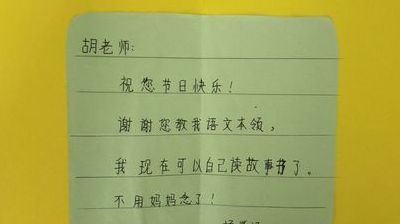 胡老师:
祝您节日快乐!
谢谢您教我语文本领。
我现在可以自己读故事书了。
不用妈妈念了!